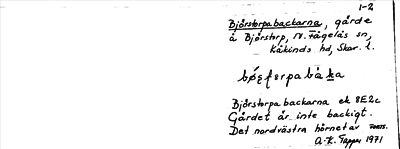 1-2
Björstorpabackarna, gärde
å Björstorp, N. Fågelås sn,
Kåkinds hd, Skar. l.
Björstorpabackarna ek 8E2c
Gärdet är inte backigt.
Det nordvästra hörnet av FORTS.
A.-K. Tapper 1971